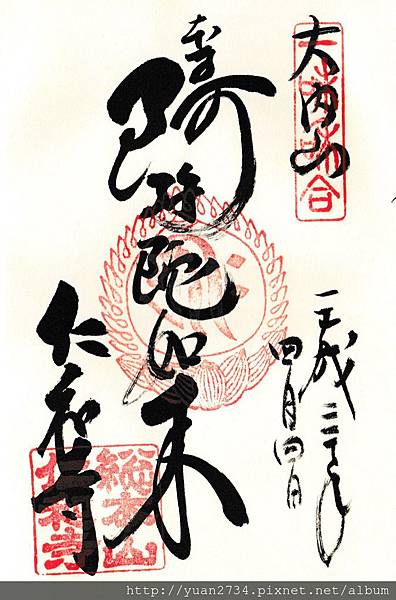 大内山
平成三十年
四月四日
阿弥陀如来
仁和寺
総本山
仁和寺
http://yuan2734.pixnet.net/album